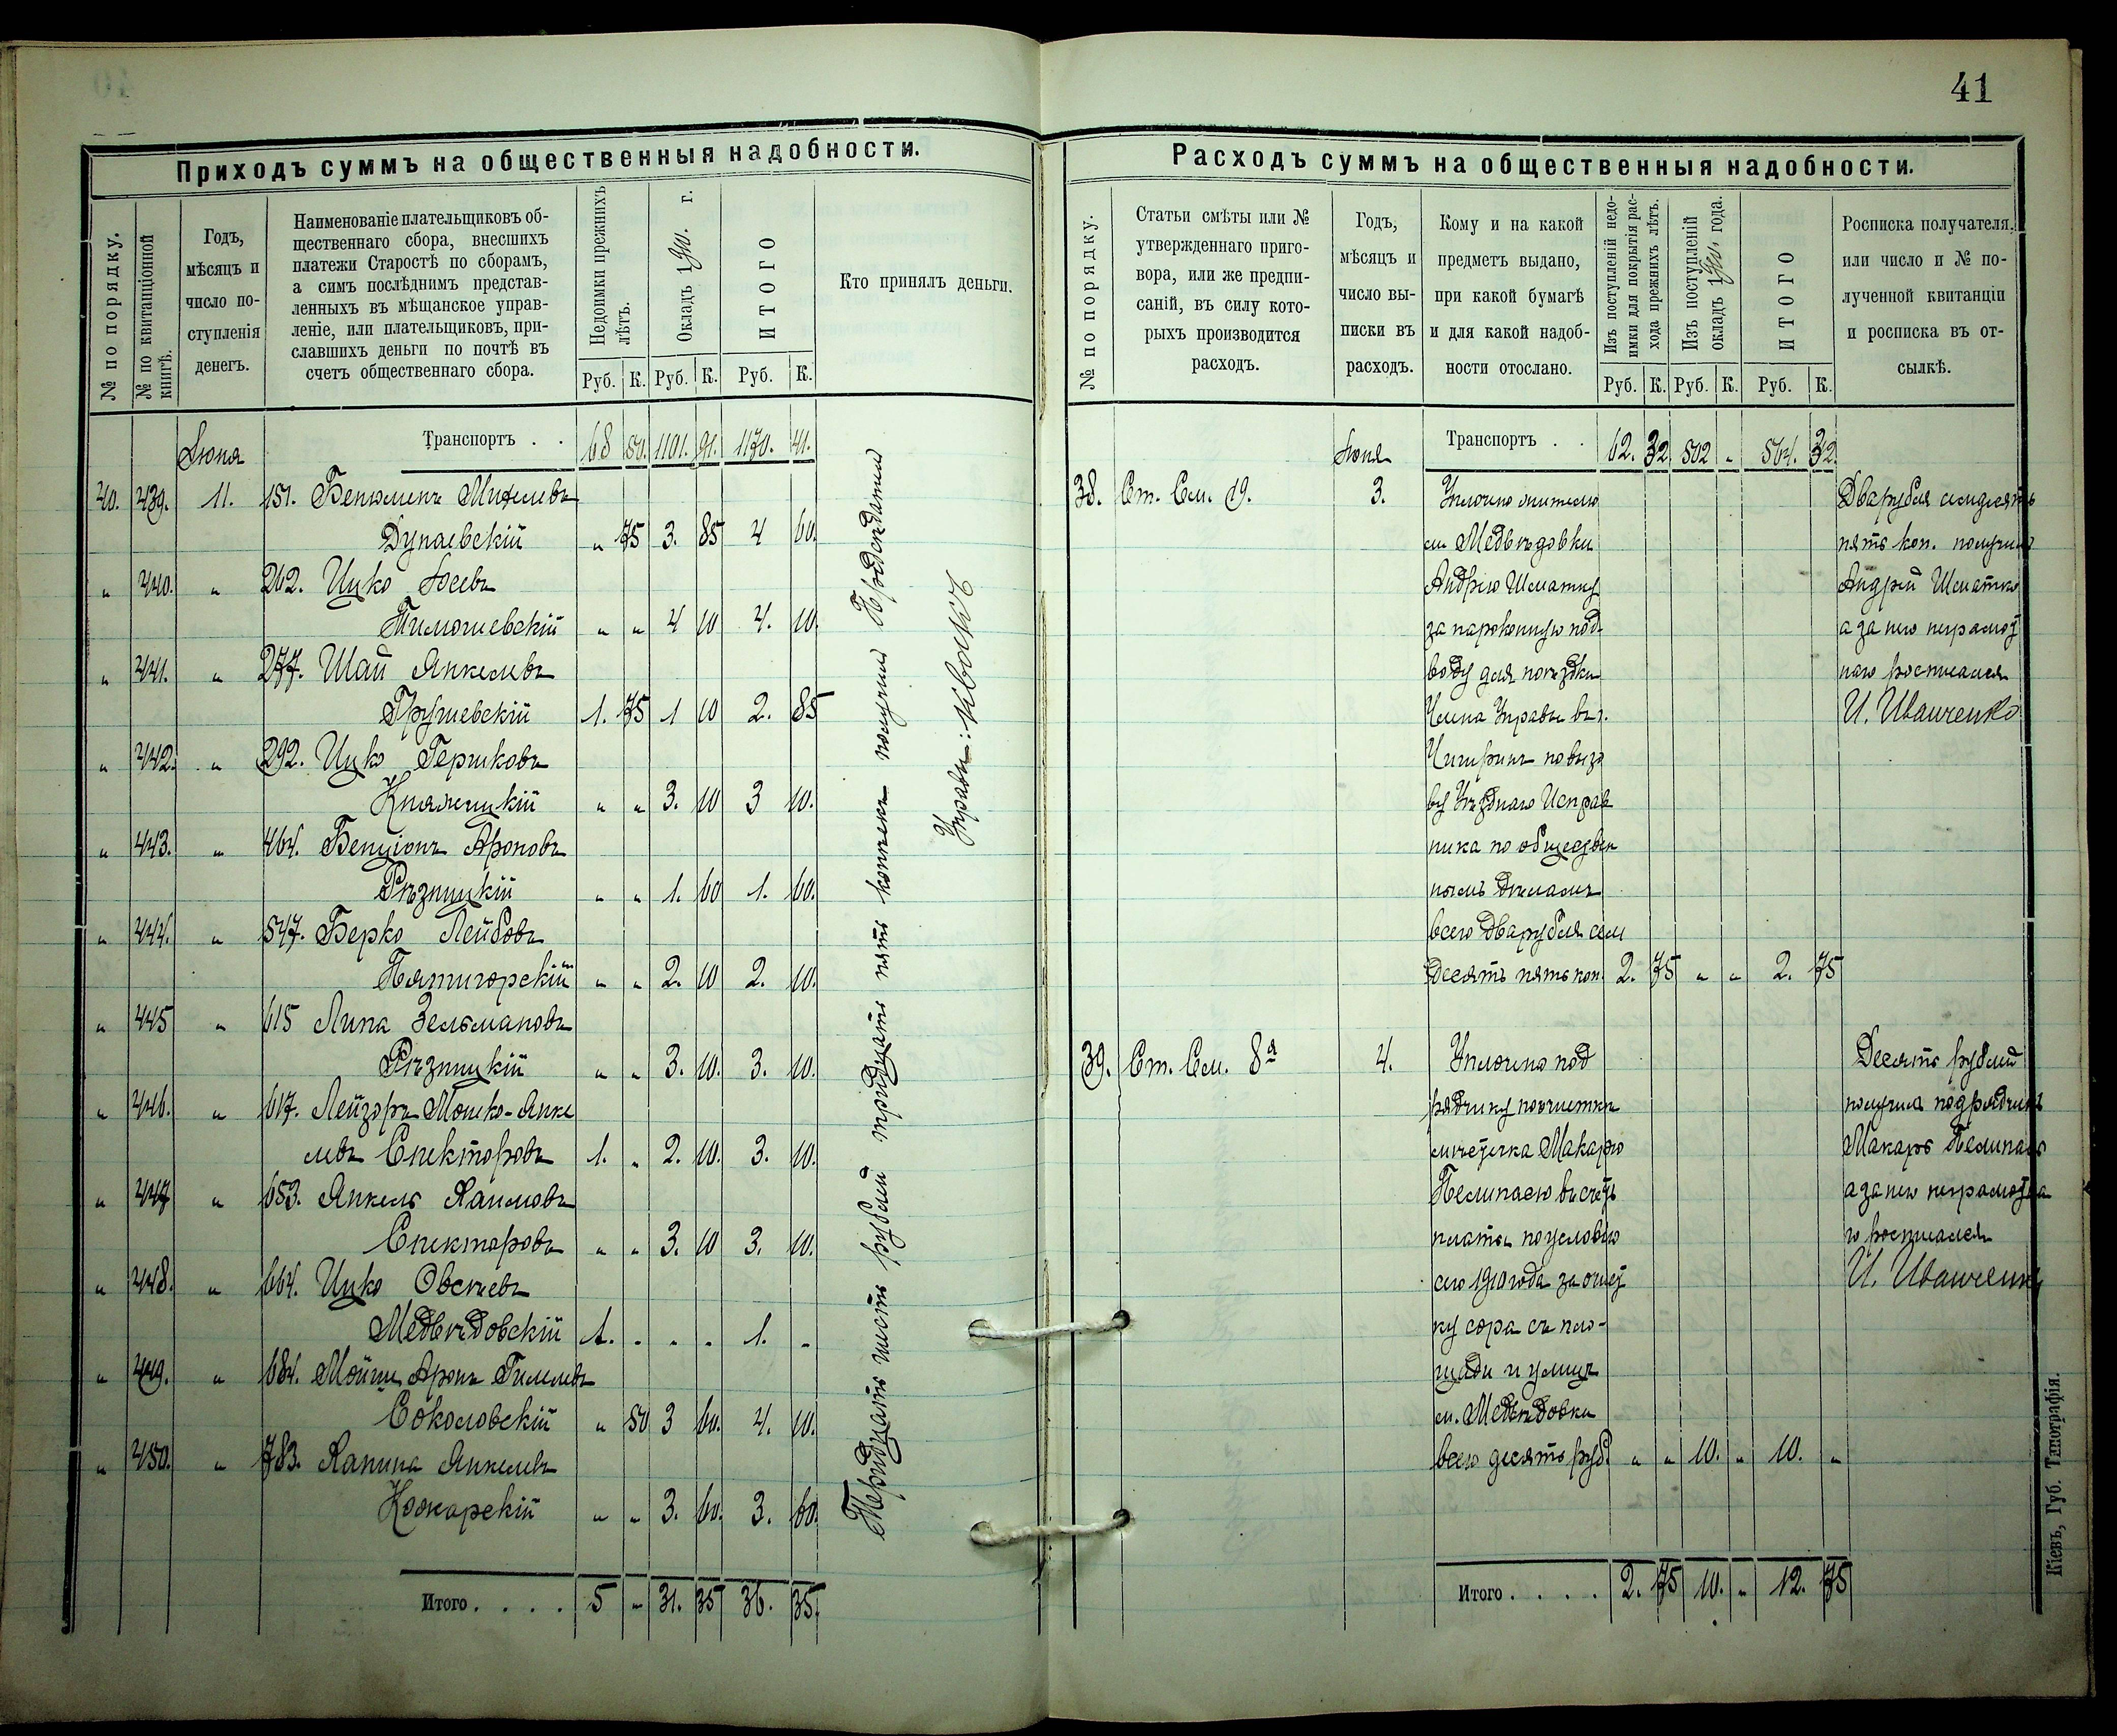 41
Приходъ суммъ на общественныя надобности.
№ по порядку.
№ по квитанціонной книгѣ.
Годъ,
мѣсяцъ и
число по-
ступленія
денегъ.
Наименованіе плательщиковъ об-
щественнаго сбора, внесшихъ
платежи Старостѣ по сборамъ,
а симъ послѣднимъ представ-
ленныхъ въ мѣщанское управ-
леніе, или плательщиковъ, при-
славшихъ деньги по почтѣ въ
счетъ общественнаго сбора.
Недоимки прежнихъ
лѣтъ.
Окладъ 1910. г.
ИТОГО
Кто принялъ деньги.
Руб. К. Руб. К. Руб. К.
Іюня Транспортъ . . 68 50. 1101. 91. 1170. 41.
40. 439. 11. 151. Беньяминъ
Дунаевскій " 75 3. 85 4 60.
" 440. " 262. Ицко
Тимошевскій " " 4 10 4. 10.
" 441. " 277. Шая Янкелевъ
Грушевскій 1. 75 1 10 2. 85
" 442. " 292. Ицко Гершковъ
Княжицкій " " 3. 10 3 10.
" 443. " 464. Бенціонъ Ароновъ
Рѣзницкій " " 1. 60 1. 60.
" 444. " 547. Берко Лейбовъ
Пятигорскій " " 2. 10 2. 10.
" 445 " 615 Липа Зельмановъ
Рѣзницкій " " 3. 10. 3. 10.
" 446. " 617. Лейзоръ Мошко-Янке
левъ Спекторовъ 1. " 2. 10. 3. 10.
" 447 " 653. Янкель Хаимовъ
Спекторовъ " " 3. 10 3. 10.
" 448. " 664. Ицко Овсеевъ
Медвѣдовскій 1. " " " 1. "
" 449. " 684. Аронъ
Соколовскій " 50 3 60. 4. 10.
" 450. " 783. Ханина Янкелевъ
" " 3. 60. 3. 60.
Итого. . . . 5 " 31. 35 36. 35.
Тридцать шесть рублей тридцать пять копѣекъ получилъ Предсѣдатель
Управы:
Расходъ суммъ на общественныя надобности.
№ по порядку.
Статьи смѣты или №
утвержденнаго приго-
вора, или же предпи-
саній, въ силу кото-
рыхъ производится
расходъ.
Годъ,
мѣсяцъ и
число вы-
писки въ
расходъ.
Кому и на какой
предметъ выдано,
при какой бумагѣ
и для какой надоб-
ности отослано.
Изъ поступленій недо-
имки для покрытія рас-
хода прежнихъ лѣтъ.
Изъ поступленій
окладъ 1910 года.
ИТОГО
Росписка получателя,
или число и № по-
лученной квитанціи
и росписка въ от-
сылкѣ.
Руб. К. Руб. К. Руб. К.
Іюня Транспортъ . . 62. 32 502 " 564. 32
38. Ст. См. 19. 3. Уплочено жителю Два рубля семдесять
м. Медвѣдовки пять коп. получилъ
Андрію Шматку Андрій Шматко
за пароконную под- а за него неграмот
воду для поѣздки наго росписался
Члена Управы въ г. И. Иванченко
Чигринъ по вызо
ву Уѣзднаго Исправ
ника по обществен
нымъ дѣламъ
всего два рубля сем
десять пять коп. 2. 75 " " 2. 75
39. Ст. См. 8я 4. Уплочено под Десять рублей
рядчику по очистки получилъ подрядчикъ
мѣстечка Макарю Макаръ
въ счетъ а за него неграмотна
платы по условію го росписался
сего 1910 года за очист И. Иванченко
ку сора съ пло-
щади и улицъ
м. Медвѣдовки
всего десять руб. " " 10. " 10. "
Итого. . . . 2. 75 10. " 12. 75
Кіевъ, Губ. Типографія.